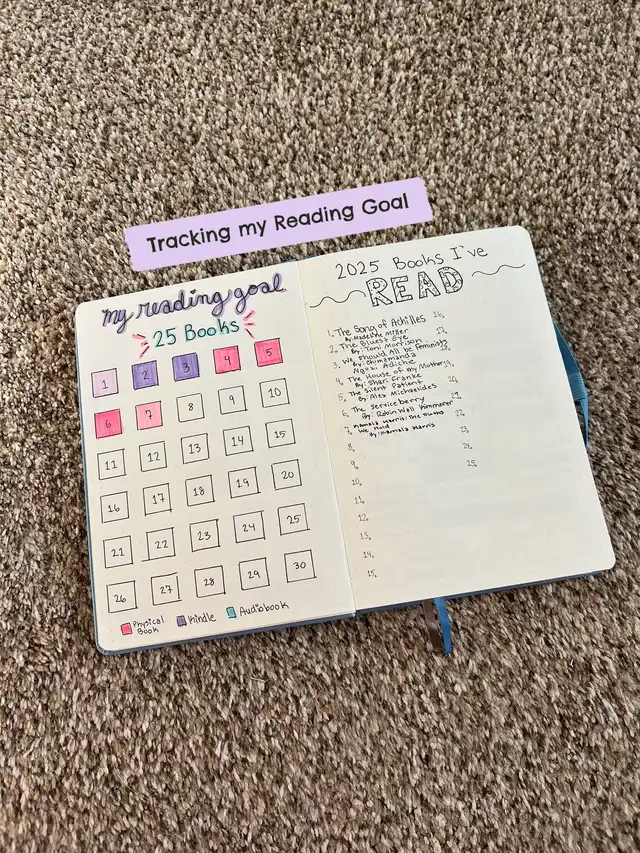 Tracking my Reading Goal
my reading goal
25 Books
1 2 3 4 5
6 7 8 9 10
11 12 13 14 15
16 17 18 19 20
21 22 23 24 25
26 27 28 29 30
Physical Book
Kindle
Audiobook
2025 Books I've
READ
1. The Song of Achilles
By: Madeline Miller
2. The Bluest Eye
By: Toni Morrison
3. We should All be feminists
By: Chimamanda
Ngozi Adichie
4. The House of my Mother
By: Shari Franke
5. The Silent Patient
By: Alex Michaelides
6. The Serviceberry
By: Robin Wall Kimmerer
7. Kamala Harris: The Truths
We Hold
By: Kamala Harris
8.
9.
10.
11.
12.
13.
14.
15.
16.
17.
19.
20.
21.
22.
23.
24.
25.